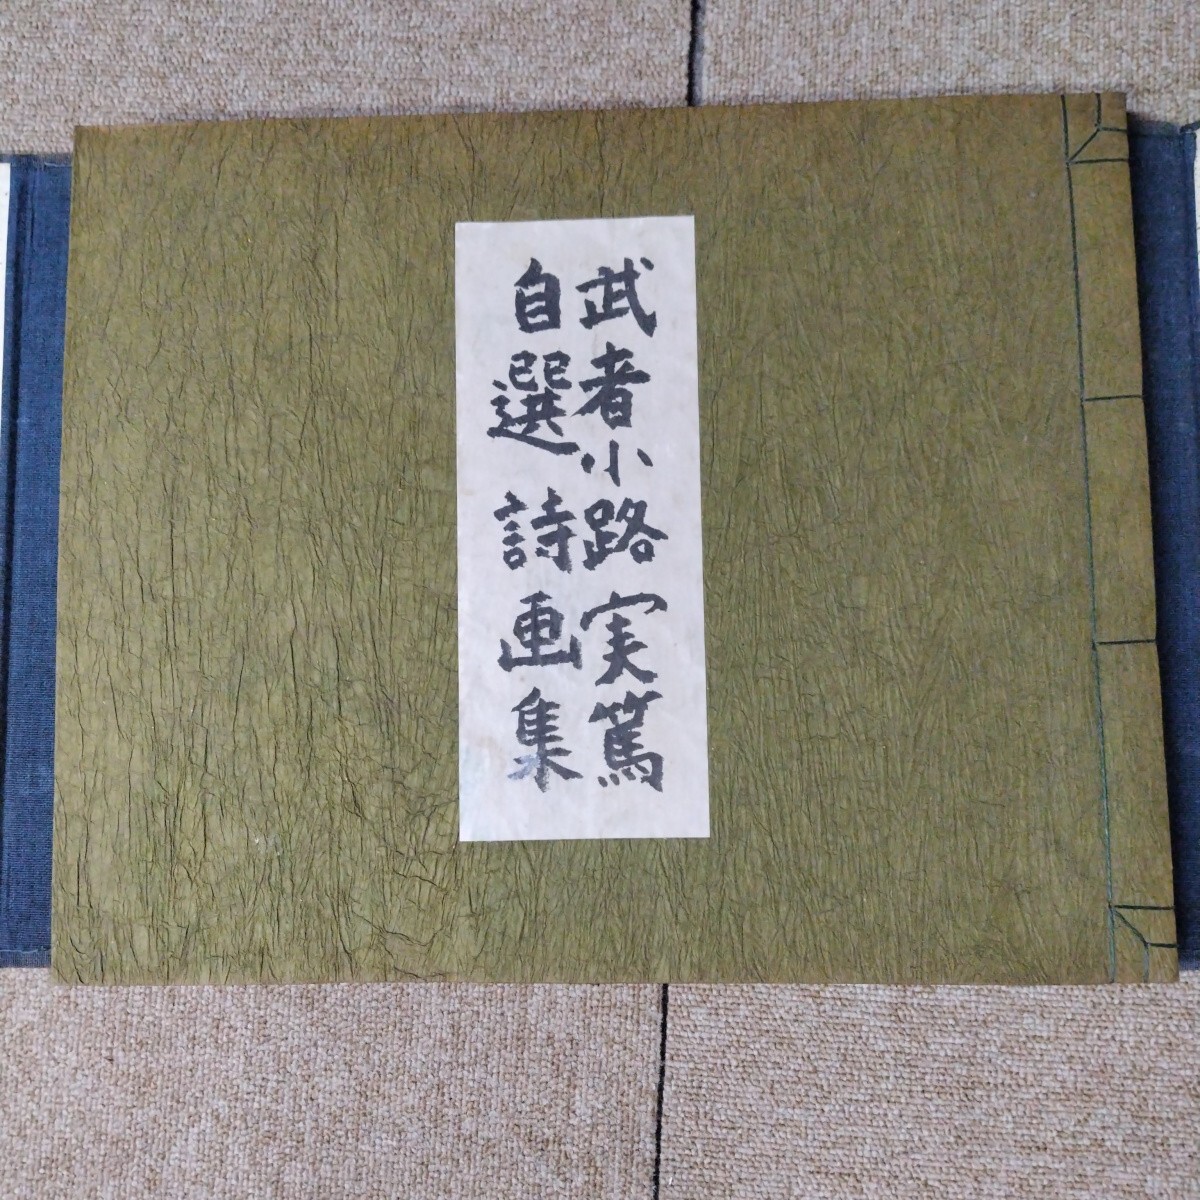 武者小路実篤
自選詩画集